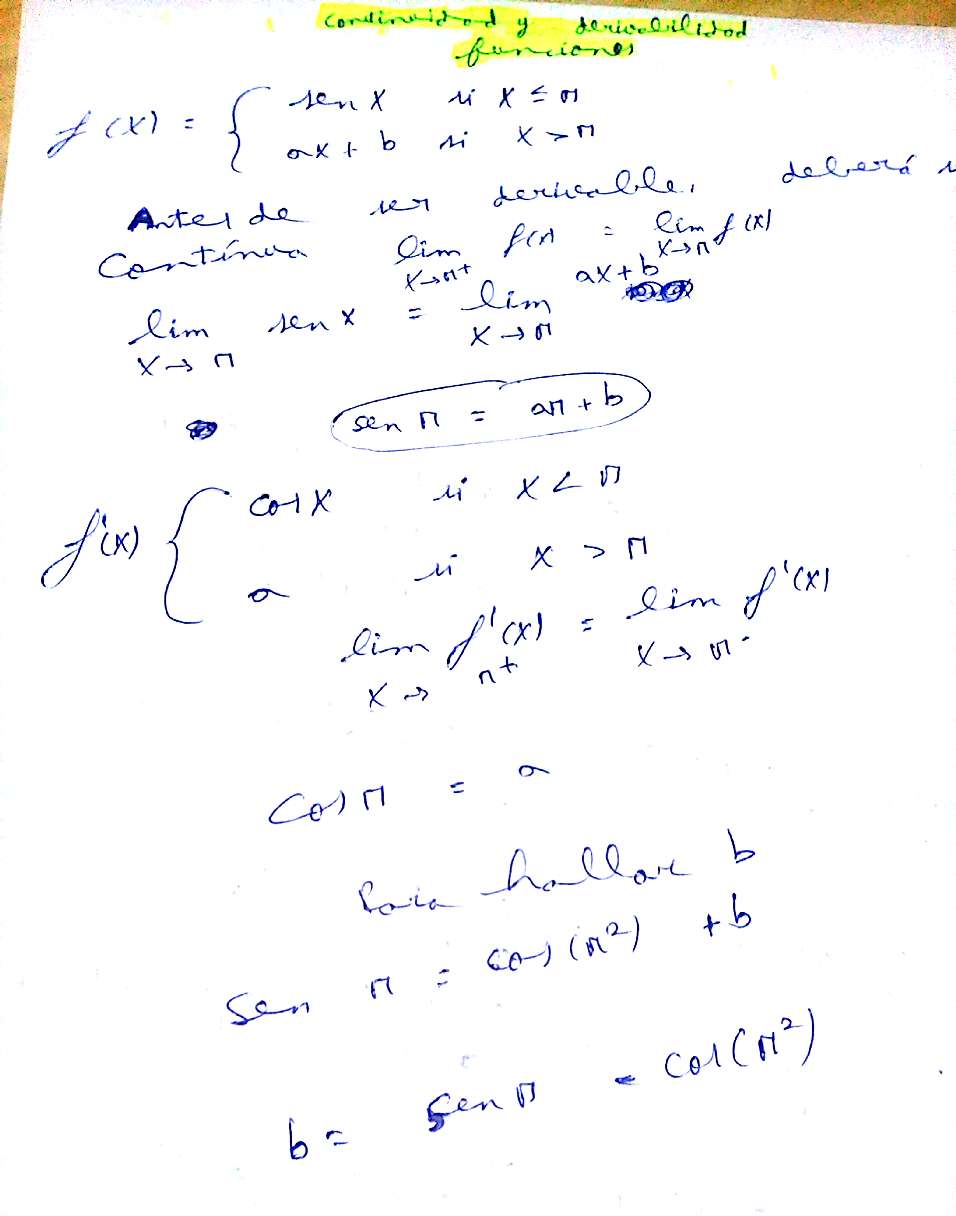 continuidad y derivabilidad
funciones
f(x) = { sen x si x ≤ π
ax + b si x > π
Antes de ser derivable, deberá
Contínua lim x→π+ f(x) = lim x→π- f(x)
lim x→π sen x = lim x→π ax + b
sen π = aπ + b
f'(x) { cos x si x < π
a si x > π
lim x→π+ f'(x) = lim x→π- f'(x)
Cos π = a
Para hallar b
Sen π = cos(π²) + b
b = sen π - cos(π²)